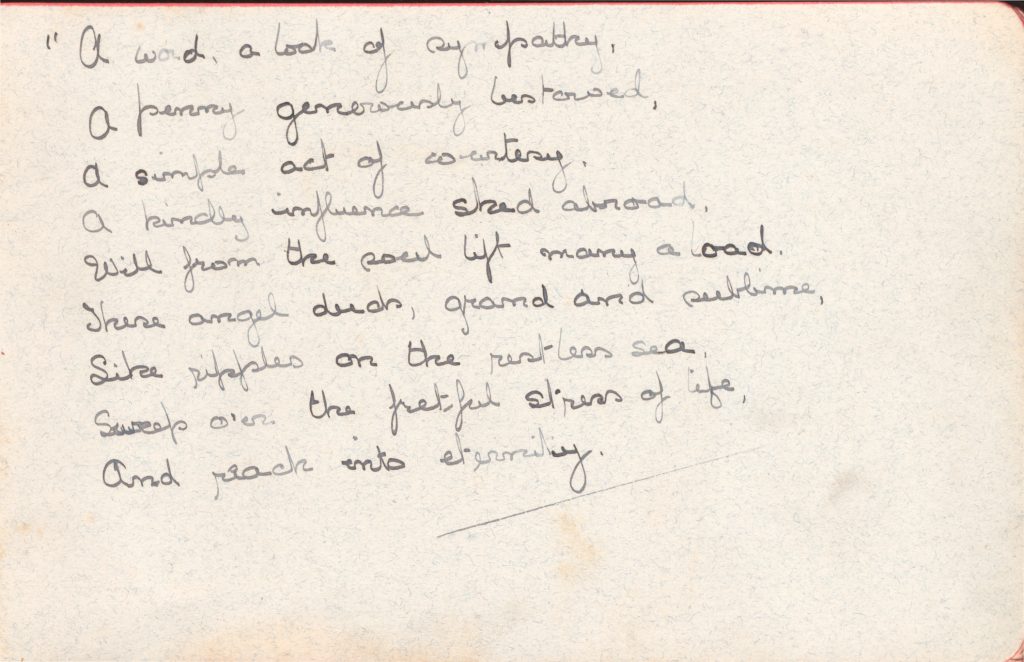 " A word, a look of sympathy,
A penny generously bestowed,
A simple act of courtesy,
A kindly influence shed abroad,
Will from the soul lift many a load.
These angel deeds, grand and sublime,
Like ripples on the restless sea,
Sweep o'er the fretful stress of life,
And reach into eternity.